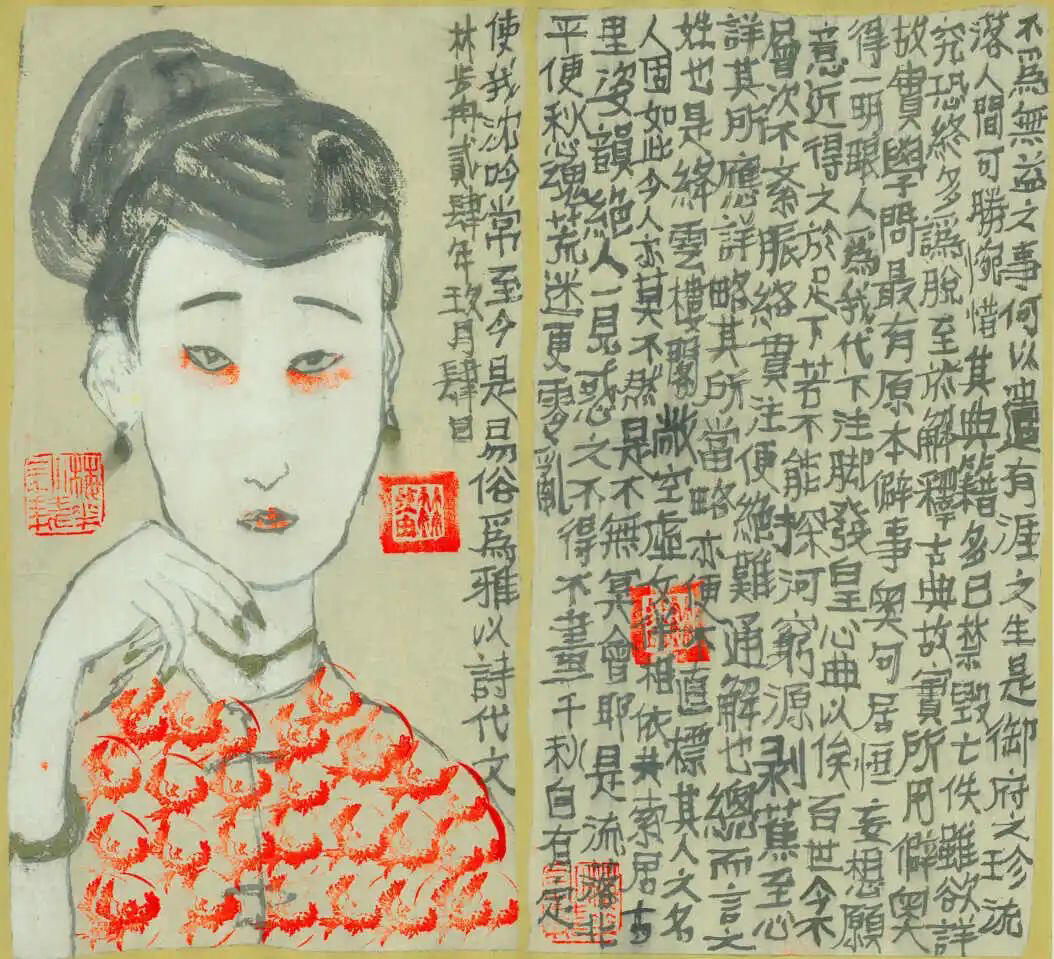 不爲無益之事何以遣有涯之生是御府之珍流
落人間可勝惋惜其典籍多已禁毀亡佚雖欲詳
究恐終多譌脫至於解釋古典故實所用僻奧
故實學問最有原本僻事奧句居恒妄想願
得一明眼人爲我代下注脚發皇心曲以俟百世今不
意近得之於足下若不能探河窮源剥蕉至心
層次不紊脈絡貫注便絶難通解也總而言之
詳其所應詳略其所當略亦便不直標其人之名
姓也是絳雲樓閣敞空虛女伴相依共索居古
人固如此今人亦莫不然是不無冥會耶是流落北
里姿韻絶人一見惑之不得不畫千秋自有定
平便愁魂荒迷更零亂
使我沈吟常至今是易俗爲雅以詩代文
林步冉貳肆年玖月肆日